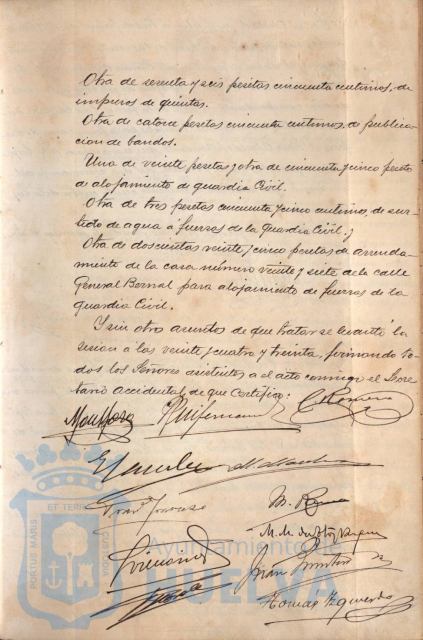 Otra de sesenta y seis pesetas cincuenta centimos, de
impresos de quintas.
Otra de catorce pesetas cincuenta centimos, de publica-
cion de bandos.
Una de veinte pesetas y otra de cincuenta y cinco peseta
de alojamiento de guardia Civil.
Otra de tres pesetas cincuenta y cinco centimos, de sur-
tido de agua á fuerzas de la Guardia Civil: y
Otra de doscientas veinte y cinco pesetas de arrenda-
miento de la casa número veinte y siete de la calle
General Bernal para alojamiento de fuerzas de la
guardia Civil.
Y sin otros asuntos de que tratar se levantó la
sesion á las veinte y cuatro y treinta, firmando to-
dos los Señores asistentes a el acto conmigo el Secre-
tario accidental de que Certifico:
C. Romero
Tomás Izquierdo
PORTUS MARIS ET TERRAE CUSTODIA
Ayuntamiento de
HUELVA